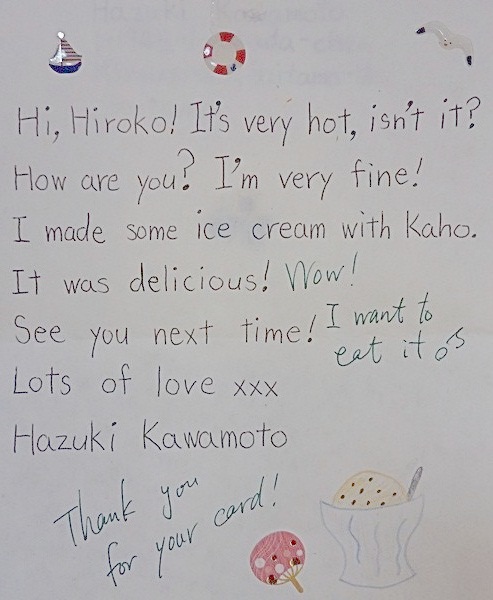 Hi, Hiroko! It's very hot, isn't it?
How are you? I'm very fine!
I made some ice cream with Kaho.
It was delicious! Wow!
See you next time! I want to
eat it
Lots of love xxx
Hazuki Kawamoto
Thank you
for your card!